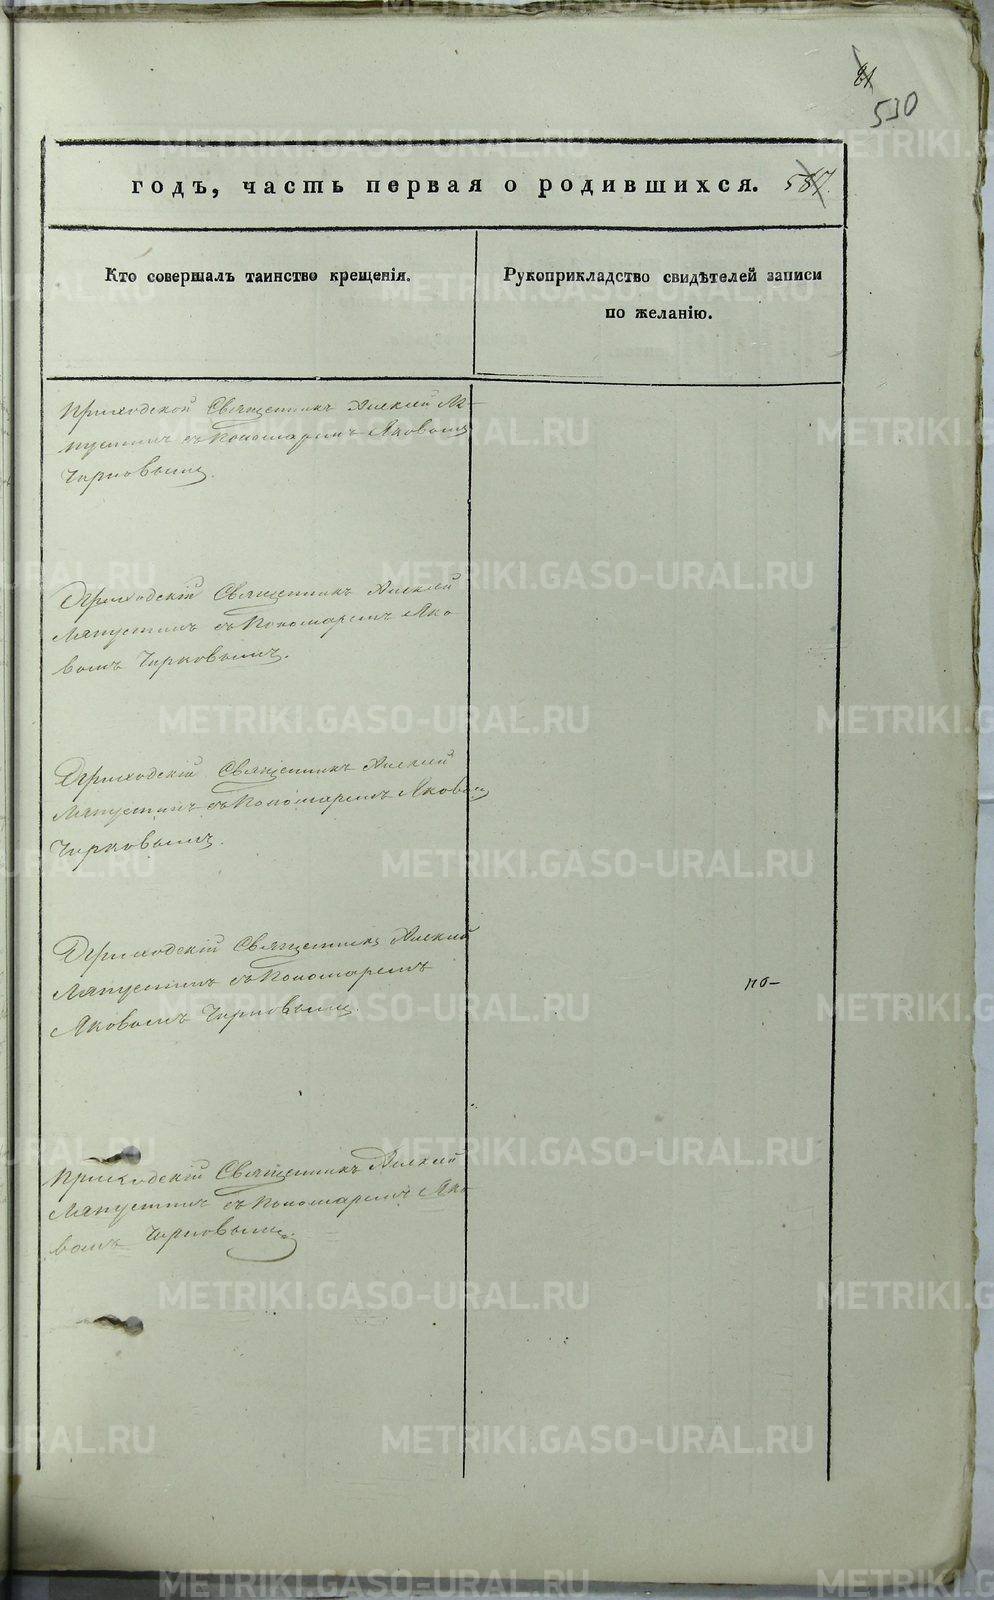 81
530
годъ, часть первая о родившихся. 587.
Кто совершалъ таинство крещенія.
Рукоприкладство свидѣтелей записи
по желанію.
Приходской Священникъ Алексій Ля-
пустинъ съ Пономаремъ Яковомъ
Чирковымъ.
Приходскій Священникъ Алексій
Ляпустинъ съ Пономаремъ Яко-
вомъ Чирковымъ.
Приходскій Священникъ Алексій
Ляпустинъ съ Пономаремъ Яковом
Чирковымъ.
Приходскій Священникъ Алексій
Ляпустинъ съ Пономаремъ
Яковомъ Чирковымъ.
по-
Приходскій Священникъ Алексій
Ляпустинъ съ Пономаремъ Яко-
вомъ Чирковымъ.
METRIKI.GASO-URAL.RU